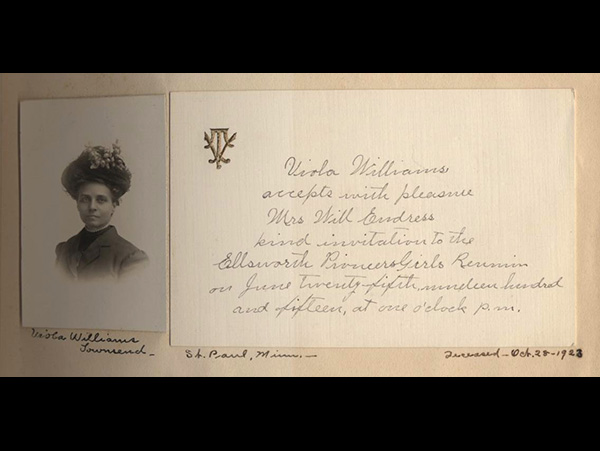 Viola Williams
accepts with pleasure
Mrs Will Endress
kind invitation to the
Ellsworth Pioneer Girls Reunion
on June twenty-fifth, nineteen hundred
and fifteen, at one o'clock p.m.
Viola Williams
Townsend-
St. Paul, Minn.-
Deceased-Oct.28-1923